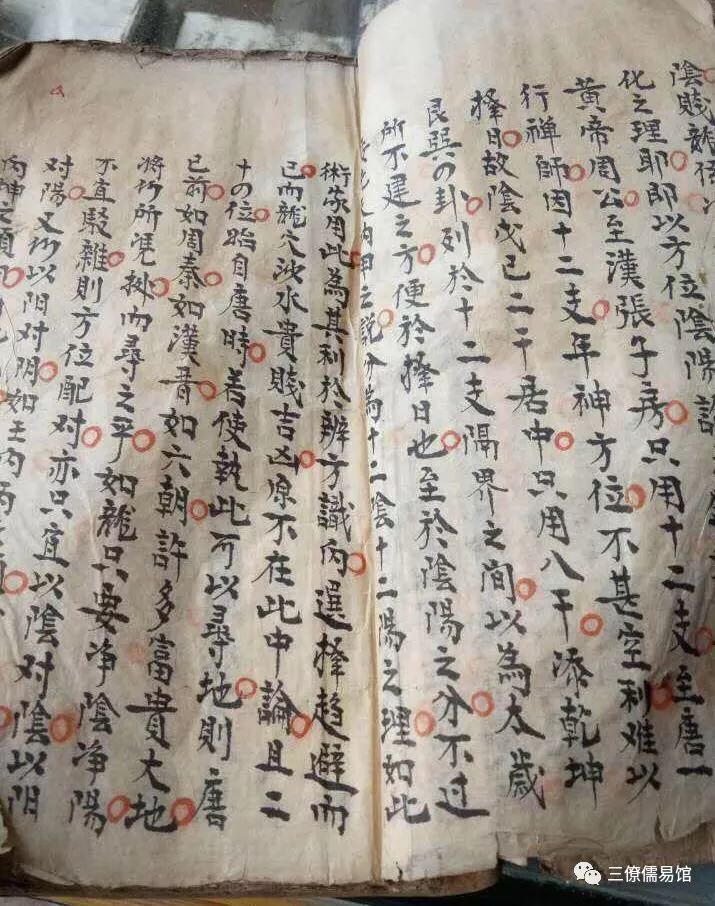 陰賤龍
化之理耶即以方位陰陽
黃帝周公至漢張子房只用十二支至唐一
行禅師因十二支年神方位不甚空利难以
擇日故陰戊己二干居中只用八干添乾坤
艮巽四卦列於十二支隔界之間以為太歲
所不建之方便於擇日也至於陰陽之分不過
納甲之說分為十二陰十二陽之理如此
術家用此為其利於辨方識向選擇趨避而
已而龍穴沙水貴賤吉凶原不在此中論且二
十四位始自唐時若使執此可以尋地則唐
已前如周秦如漢晋如六朝許多富貴大地
將何所凭据而尋之乎如龍只要净陰净陽
不宜駁雜則方位配对亦只宜以陰对陰以阳
对陽又何以阳对阴如壬丙
之類
三僚儒易馆